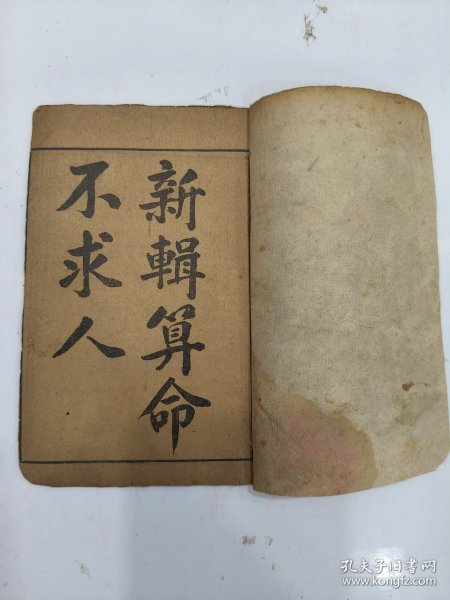 新輯算命
不求人
孔夫子旧书网
www.kongfz.com